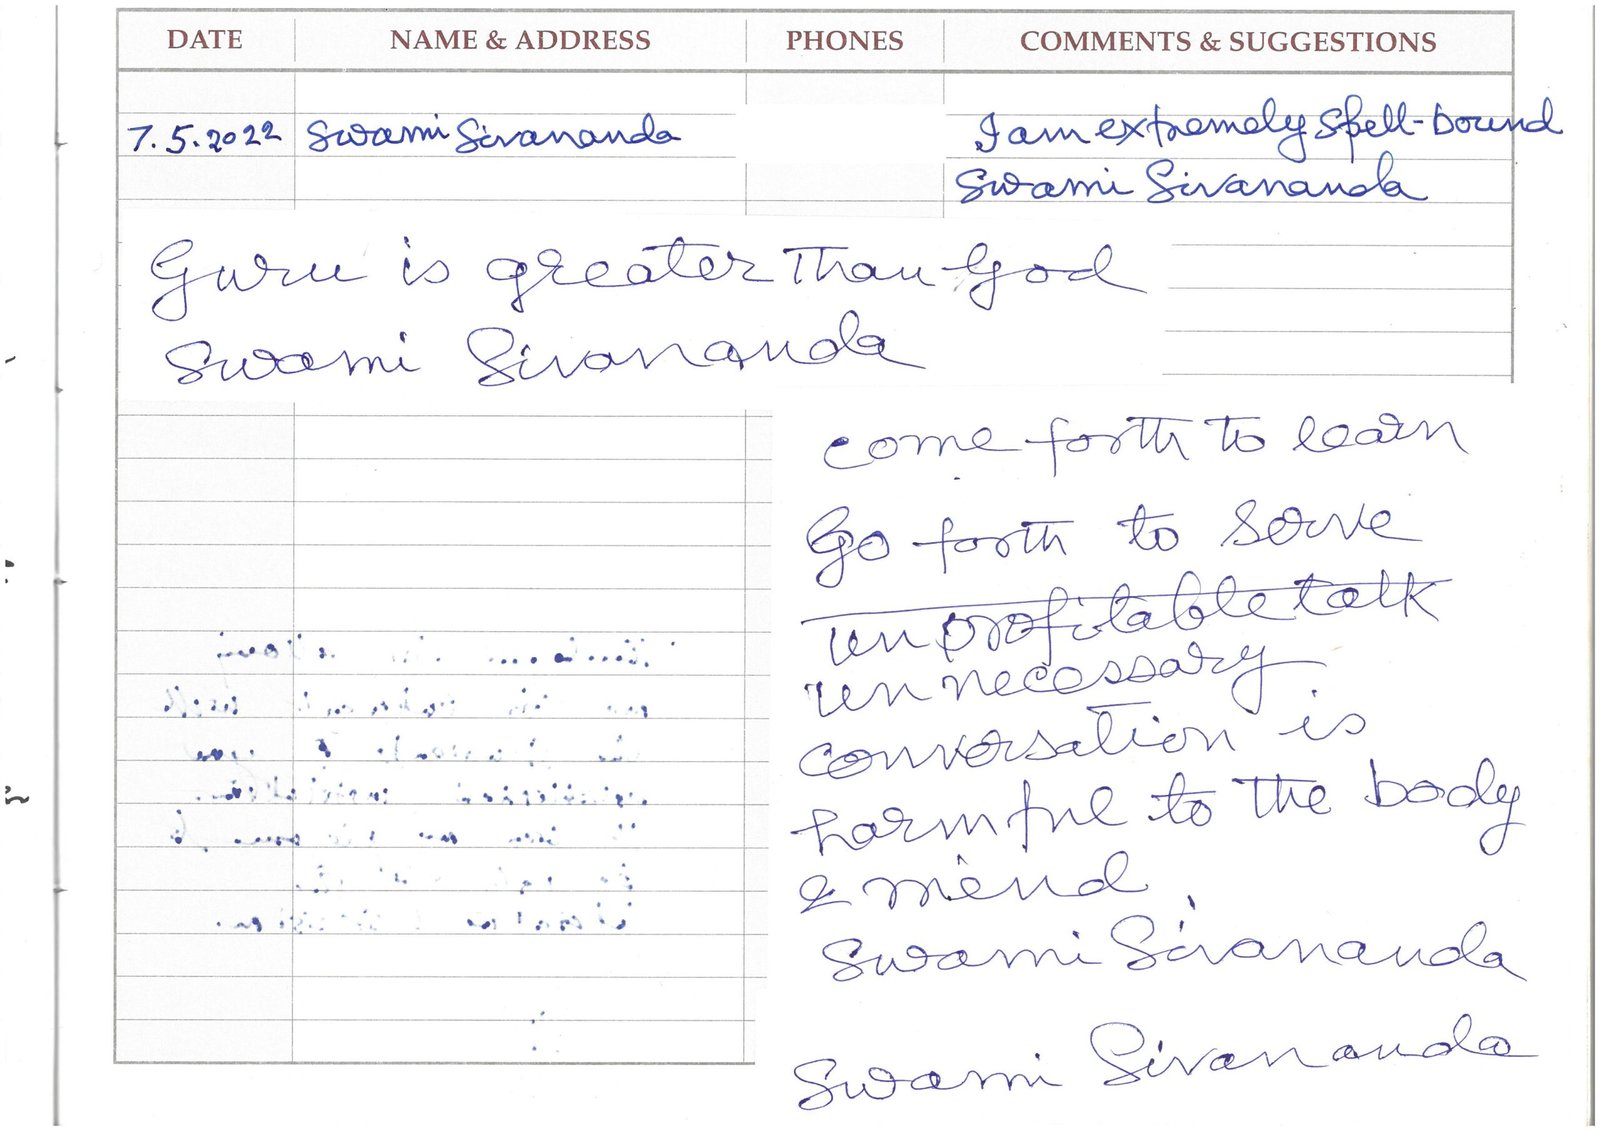 DATE NAME & ADDRESS PHONES COMMENTS & SUGGESTIONS
7.5.2022 Swami Sivananda I am extremely spell-bound
Swami Sivananda
Guru is greater than God
Swami Sivananda
come forth to learn
Go forth to serve
unprofitable talk
unnecessary
conversation is
harmful to the body
& mind
Swami Sivananda
Swami Sivananda